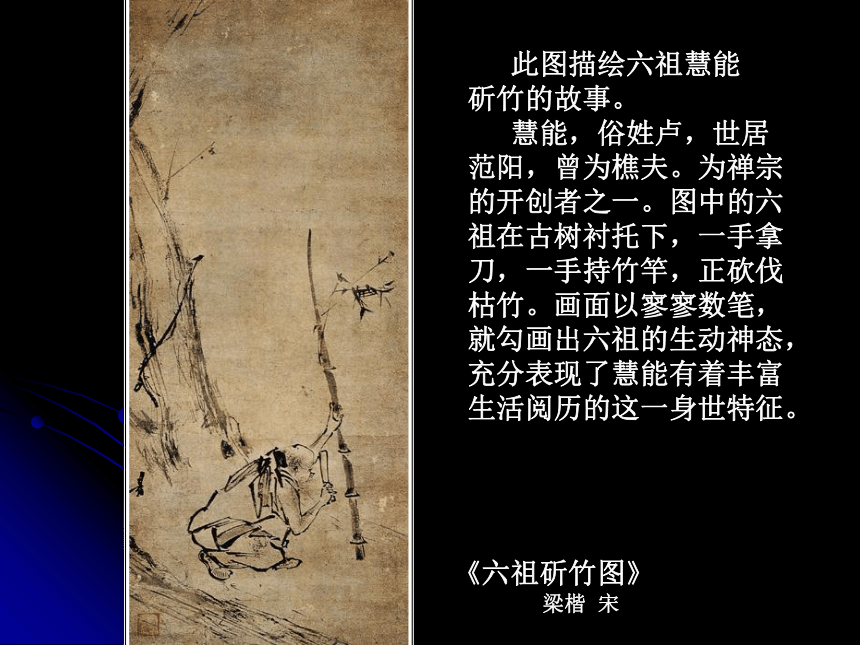 此图描绘六祖慧能
斫竹的故事。
慧能，俗姓卢，世居
范阳，曾为樵夫。为禅宗
的开创者之一。图中的六
祖在古树衬托下，一手拿
刀，一手持竹竿，正砍伐
枯竹。画面以寥寥数笔，
就勾画出六祖的生动神态，
充分表现了慧能有着丰富
生活阅历的这一身世特征。
《六祖斫竹图》
梁楷 宋